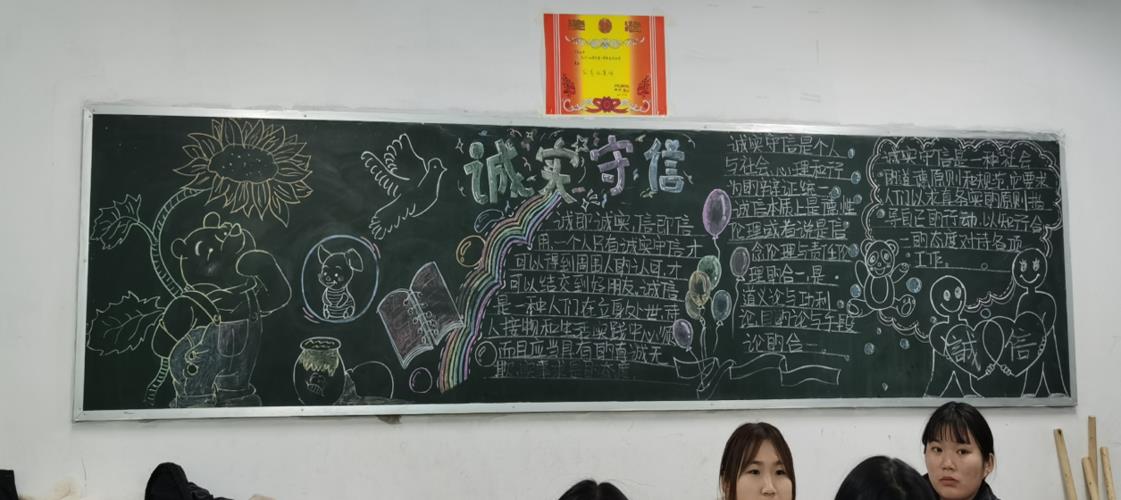 诚实守信
诚即诚实,信即信
用,一个人只有诚实守信,才
可以得到周围人的认可,才
可以结交到好朋友,诚信
是一种人们在立身处世,待
人接物和生活实践中必须
而且应当具有的真诚无
诚实守信是个人
与社会,心理和行
为的辩证统一
诚信本质上是德性
伦理或者说是信
念伦理与责任伦
理的合一,是
道义论与功利
论目的论与手段
论的合一。
诚实守信是一种社会
的道德原则和规范,它要求
人们以求真务实的原则指
导自己的行动,以知行合
一的态度对待各项
工作。
誠 信